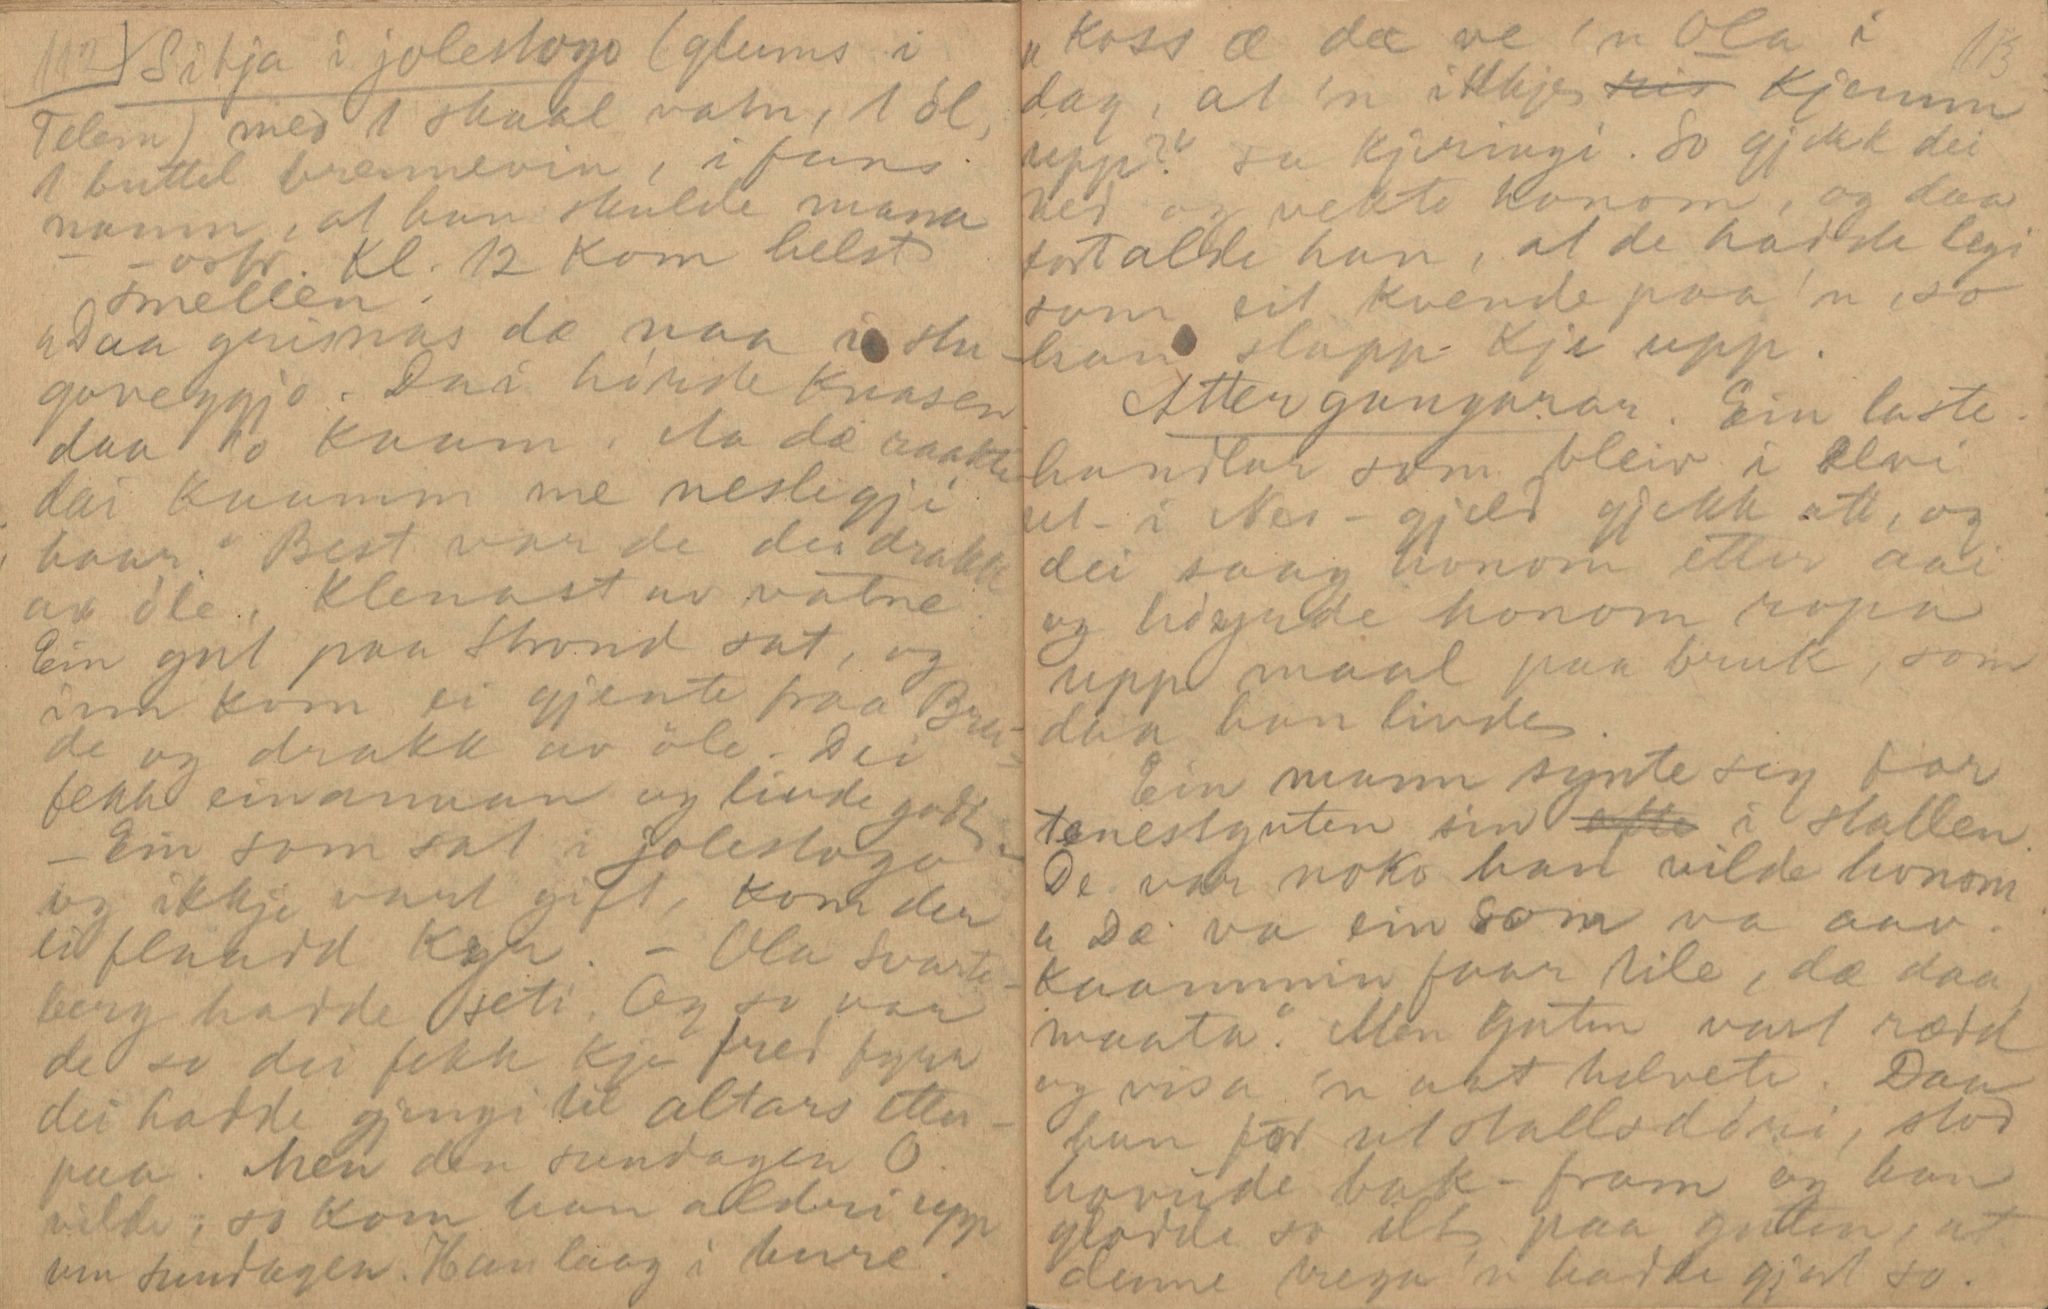 112) Sitja i jolestogo (glums i
Telem) med 1 skaal vatn, 1 öl,
1 buttel brennevin, i fans
namn, at han skulde mana
- - osfr. Kl. 12 kom helst
smellen.
"Daa gnisnas dæ naa i stu-
goveggjo. Dai hörde knasen
daa 'o kaam. Aa dæ raakte
dai kaamm me neslegji
haar." Best var de dei drakk
av öle, klenast av vatne.
Ein gut paa Strond sat, og
inn kom ei gjente fraa Brei-
de og drakk av öle. Dei
fekk einannan og livde godt.
- Ein som sat i jolestogo
og ikkje vart gift, kom der
ei flaadd kyr. - Ola Svarte-
berg hadde seti. Og so var
de so dei fekk kje fred fyrr
dei hadde gjengi til altars etter-
paa. Men den sundagen O.
vilde, so kom han aldri upp
um sundagen. Han laag i bure.
113
"Koss æ dæ ve 'n Ola i
dag, at 'n ikkje kjemm
upp?" sa kjeringi. So gjekk dei
ned og vekte honom, og daa
fortalde han, at de hadde legi
som eit kvende paa 'n, so
han slapp kje upp.
Attergangarar. Ein laste-
handlar som bleiv i elvi
ut i Nes-gjeld gjekk att, og
dei saag honom etter aai
og höyrde honom ropa
upp maal paa bruk, som
daa han livde.
Ein mann synte seg for
tenestguten sin i stallen.
De var noko han vilde honom
"Dæ va ein som va aav-
kaammin faar lile, dæ daa
maata." Men guten vart rædd
og visa 'n aat helvete. Daa
han för ut stallsdöri, stod
hovude bak-fram og han
glodde so ilt paa guten, at
denne trega 'n hadde gjort so.